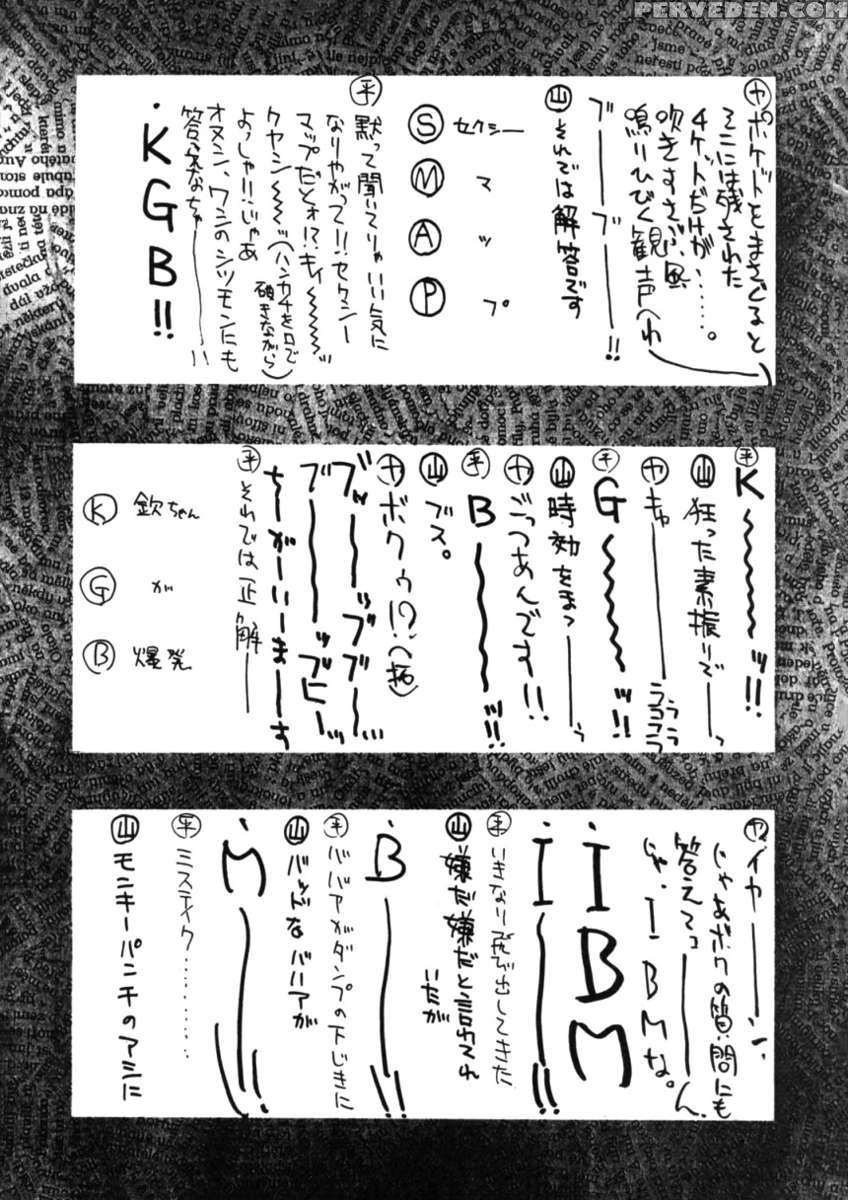 PERVEDEN.COM
ヤ ポケットをまさぐると
そこには残された
4ケットだけが‥‥‥。
吹きすさぶ風
鳴りひびく観声へわ
ブーーーブーーー!!
山 それでは解答です
S セクシー
M マ
A ッ
P プ
平 黙って聞いてりゃいい気に
なりやがって!!セクシー
マップだとォ!?キィ〜〜〜ッ
クヤシ〜〜(ハンカチを口で
破きながら)
よっしゃ!!じゃあ
オヌシ、ワシのシツモンにも
答えなちゃーーー!!
・KGB!!
平 K〜〜〜ッ!!
山 狂った素振りでーーっ
ヤ キャーーーうううううう
平 G〜〜〜ッ!!
山 時効をまつーーぅ
ヤ ごっつあんです!!
平 B〜〜〜ッ!!
山 ブス。
ヤ ボクゥ!?(拓)
ちーがーいーまーーす
平 それでは正解ーー
K 欽ちゃん
G が
B 爆発
ヤ イヤーーン、
じゃあボクの質問にも
答えてっーーん、
じゃ、IBMな。
・IBM
・I──!!
平 いきなり飛び出してきた
山 嫌だ嫌だと言われ
いたが
・B──!!
平 ババアがダンプの下じきに
山 バッドなババアが
・M──!!
平 ミステイク‥‥‥‥‥
山 モンキーパンチのアシに